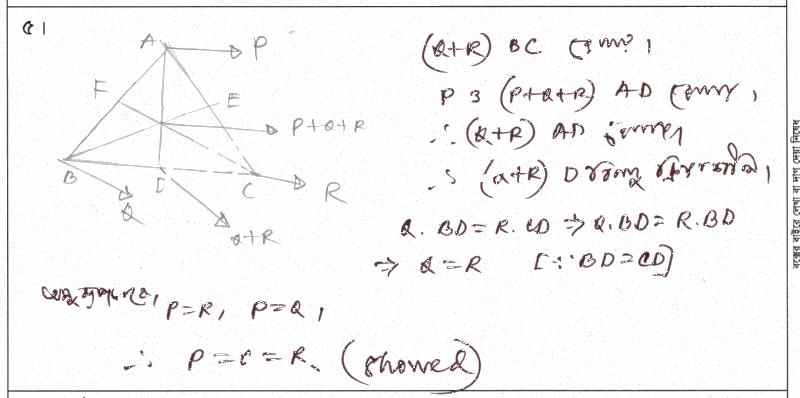 ৫।
A
P
F
E
P+Q+R
B
D
C
R
Q
Q+R
(Q+R) BC রেখায়।
P ও (P+Q+R) AD রেখায়,
∴ (Q+R) AD রেখায়।
∴ (Q+R) D বিন্দু ক্রিয়াশীল।
Q. BD = R. CD ⇒ Q. BD = R. BD
⇒ Q = R [∵ BD = CD]
অনুরূপভাবে, P = R, P = Q,
∴ P = Q = R. (Showed)
বক্সের বাইরে লেখা বা দাগ দেয়া নিষেধ